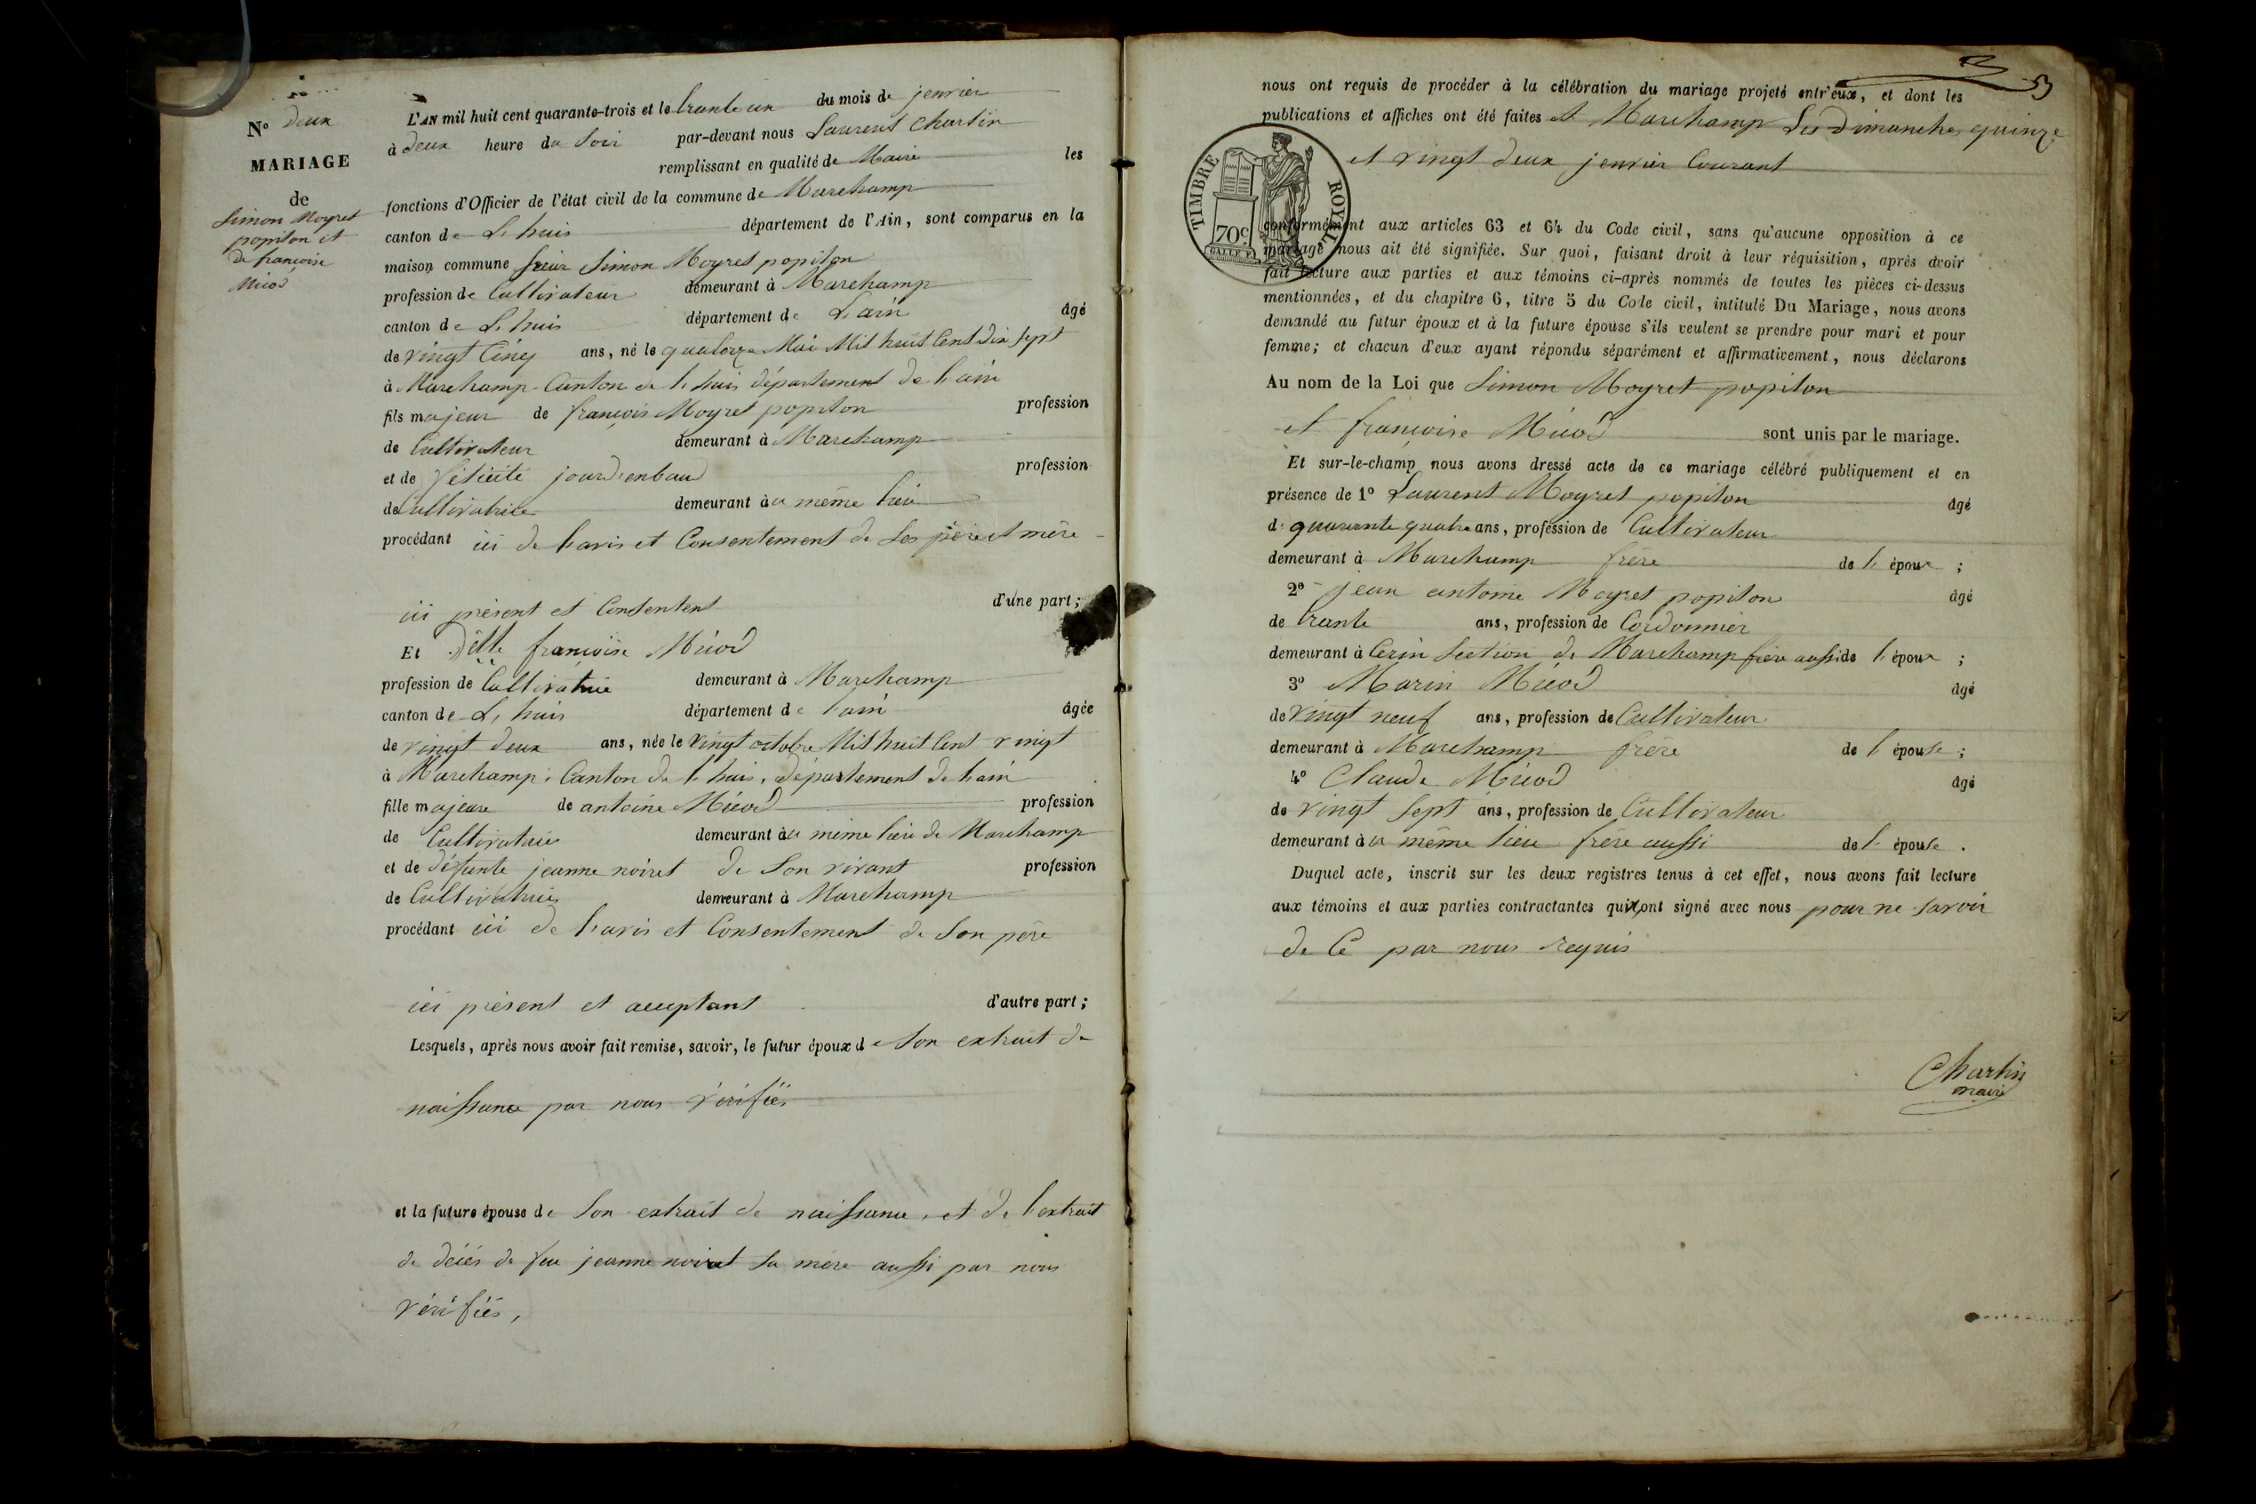 N° deux
MARIAGE
de
Simon Moyret
popiton et
de françoise
Micod
L'AN mil huit cent quarante-trois et le trante un du mois de jenvier
à deux heure du Soir par-devant nous Laurent Chartin
remplissant en qualité de Maire les
fonctions d'Officier de l'état civil de la commune de Marchamp
canton de L. huis département de l'Ain, sont comparus en la
maison commune sieur Simon Moyret popiton
profession de Cultivateur demeurant à Marchamp
canton de L. huis département de L'ain âgé
de vingt Cinq ans, né le quatorze Mai Mil huit Cent dix sept
à Marchamp Canton de l. huis département de l'ain
fils majeur de françois Moyret popiton profession
de Cultivateur demeurant à Marchamp
et de félicité jourdenbaud profession
de Cultivatrice demeurant au même lieu
procédant ici de l'avis et Consentement de Ses père et mère
ici présent et Consentent d'une part;
Et Dlle françoise Micod
profession de Cultivatrie demeurant à Marchamp
canton de L. huis département de l'ain âgée
de vingt deux ans, née le vingt octobre Mil huit Cent vingt
à Marchamp, Canton de l. huis, département de l'ain
fille majeure de antoine Micod profession
de Cultivateur demeurant au même lieu de Marchamp
et de défunte jeanne noiret de Son vivant profession
de Cultivatrice demeurant à Marchamp
procédant ici de l'avis et Consentement de Son père
ici présent et acceptant d'autre part;
Lesquels, après nous avoir fait remise, savoir, le futur époux de Son extrait de
naissance par nous vérifiés
et la future épouse de Son extrait de naissance, et de l'extrait
de décés de feu jeanne noiret sa mère aussi par nous
vérifiés,
3
nous ont requis de procéder à la célébration du mariage projeté entr'eux, et dont les
publications et affiches ont été faites A Marchamp Les dimanches quinze
et vingt deux jenvier Courant
TIMBRE ROYAL
70c
conformément aux articles 63 et 64 du Code civil, sans qu'aucune opposition à ce
mariage nous ait été signifiée. Sur quoi, faisant droit à leur réquisition, après avoir
fait lecture aux parties et aux témoins ci-après nommés de toutes les pièces ci-dessus
mentionnées, et du chapitre 6, titre 5 du Code civil, intitulé Du Mariage, nous avons
demandé au futur époux et à la future épouse s'ils veulent se prendre pour mari et pour
femme; et chacun d'eux ayant répondu séparément et affirmativement, nous déclarons
Au nom de la Loi que Simon Moyret popiton
et françoise Micod sont unis par le mariage.
Et sur-le-champ nous avons dressé acte de ce mariage célébré publiquement et en
présence de 1° Laurent Moyret popiton âgé
de quarante quatre ans, profession de Cultivateur
demeurant à Marchamp frère de l. époux ;
2° jean antoine Moyret popiton âgé
de trante ans, profession de Cordonnier
demeurant à Cerin Section de Marchamp frère aussi de l. époux ;
3° Marin Micod âgé
de vingt neuf ans, profession de Cultivateur
demeurant à Marchamp frère de l épouse ;
4° Claude Micod âgé
de vingt Sept ans, profession de Cultivateur
demeurant au même lieu frère aussi de l épouse .
Duquel acte, inscrit sur les deux registres tenus à cet effet, nous avons fait lecture
aux témoins et aux parties contractantes qui n'ont signé avec nous pour ne Savoir
de Ce par nous requis
Chartin
maire